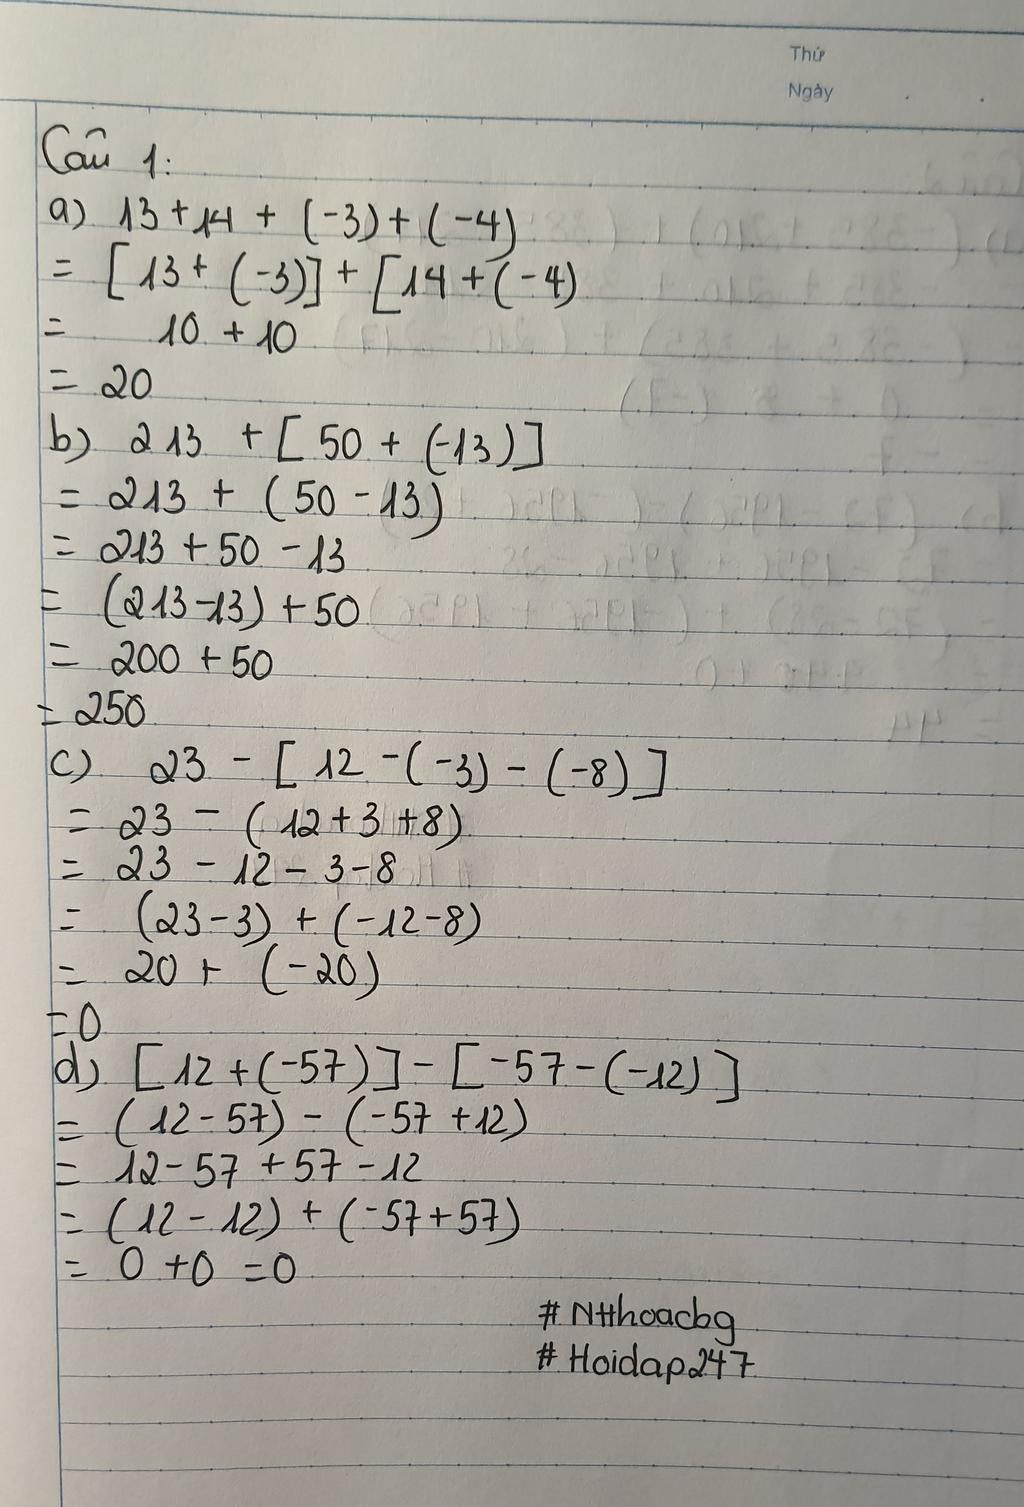 Thứ
Ngày
Câu 1:
a) 13 + 14 + (-3) + (-4)
= [13 + (-3)] + [14 + (-4)
= 10 + 10
= 20
b) 213 + [50 + (-13)]
= 213 + (50 - 13)
= 213 + 50 - 13
= (213-13) + 50
= 200 + 50
= 250
c) 23 - [12 -(-3) - (-8)]
= 23 - (12+3+8)
= 23 - 12 - 3 - 8
= (23-3) + (-12-8)
= 20 + (-20)
=0
d) [12 + (-57)] - [-57 - (-12)]
= (12 - 57) - (-57 + 12)
= 12 - 57 + 57 - 12
= (12 - 12) + (-57+57)
= 0 + 0 = 0
# Ntthoacbg
# Hoidap247